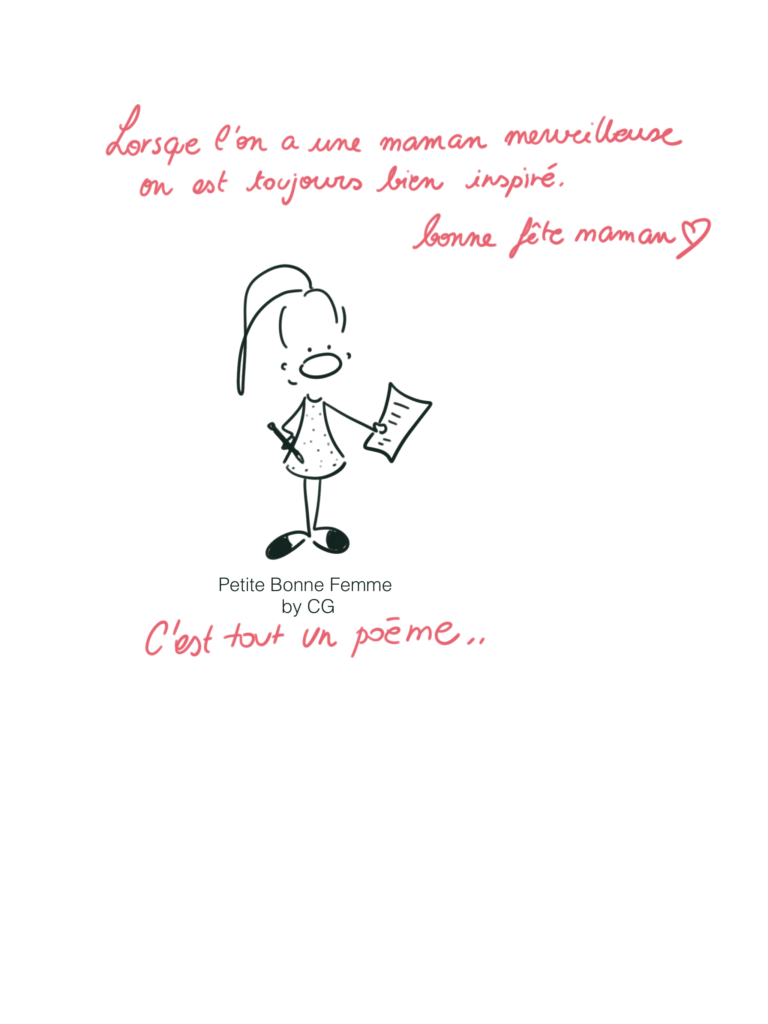 Lorsque l'on a une maman merveilleuse
on est toujours bien inspiré.
bonne fête maman♡
Petite Bonne Femme
by CG
C'est tout un poēme..